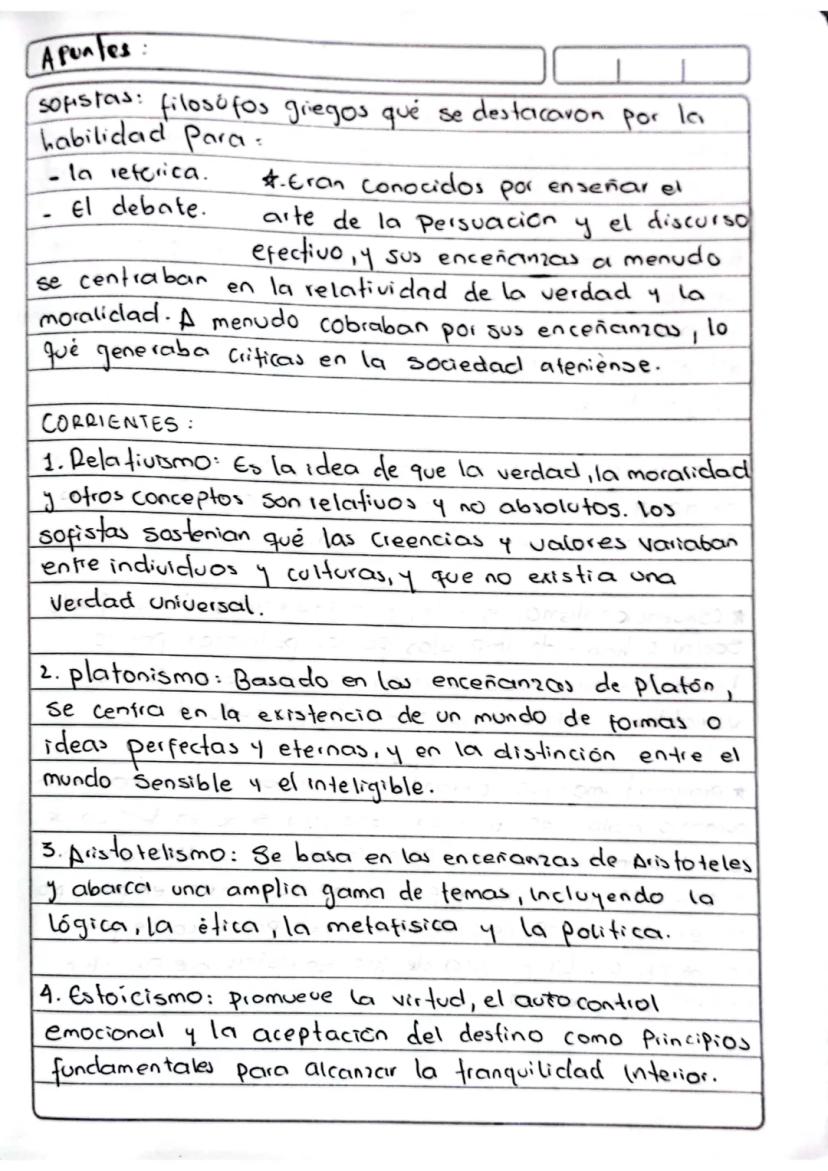 Apuntes:
sofistas: filosófos griegos qué se destacaron por la
habilidad Para:
- la retorica.
- El debate.
*. Eran conocidos por enseñar el
arte de la Persuación y el discurso
efectivo, y sus enceñanzas a menudo
se centraban en la relatividad de la verdad y la
moralidad. A menudo cobraban por sus enceñanzas, lo
qué generaba criticas en la sociedad ateniènse.
CORRIENTES:
1. Relativismo: Es la idea de que la verdad, la moralidad
y otros conceptos son relativos y no absolutos. los
sofistas sostenian qué las creencias y valores variaban
entre individuos y culturas, y que no existia una
verdad universal.
2. platonismo: Basado en las enceñanzas de Platón,
se centra en la existencia de un mundo de formas o
ideas perfectas y eternas, y en la distinción entre el
mundo sensible y el inteligible.
3. Aristotelismo: Se basa en las enceñanzas de Aristoteles
y abarca una amplia gama de temas, incluyendo la
lógica, la ètica, la metafisica y la politica.
4. Estoicismo: promueve la virtud, el autocontrol
emocional y la aceptación del destino como Principios
fundamentales para alcanzar la tranquilidad interior.